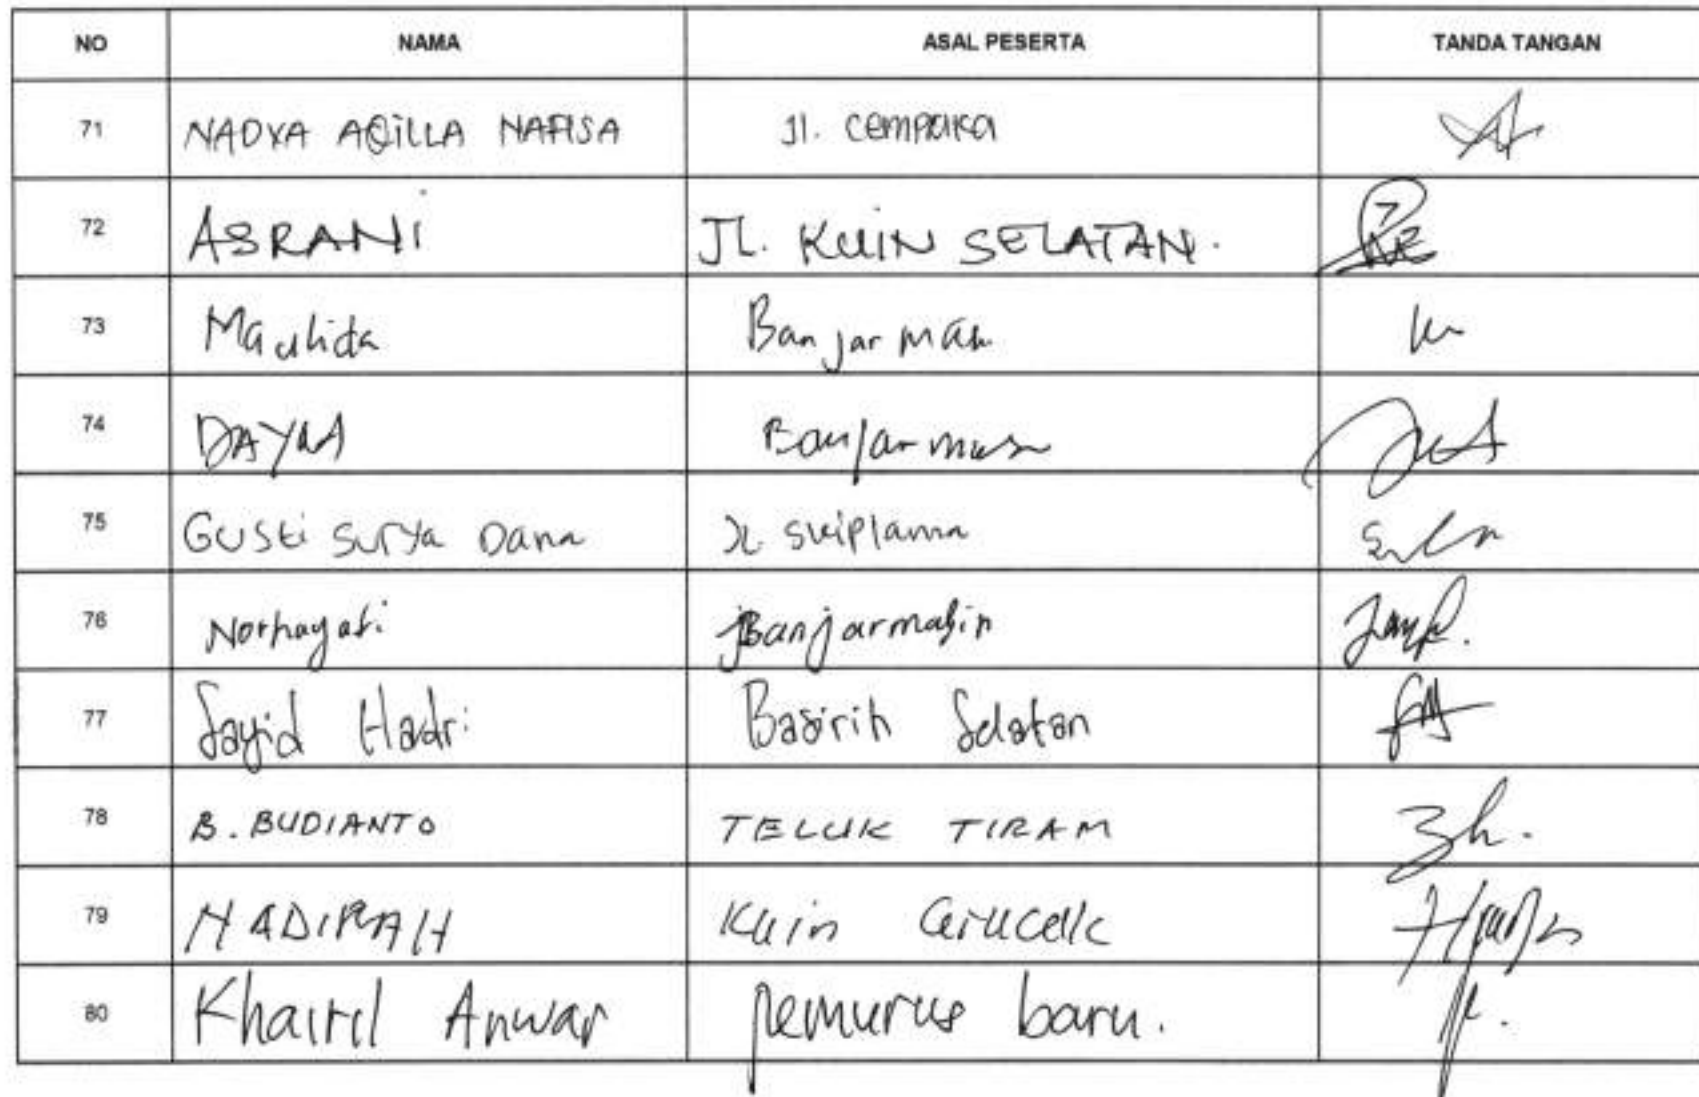 NO NAMA ASAL PESERTA TANDA TANGAN
71 NADYA AQILLA NAFISA Jl. cempaka
72 ASRANI JL. KUIN SELATAN.
73 Maulida Banjarmasin
74 Banjarmasin
75 Gusti Surya Dana Jl.
76 Norhayati Banjarmasin
77 Sayid Hadri Basirih Selatan
78 B. BUDIANTO TELUK TIRAM
79 HADIRAH Kuin Cerucuk
80 Khairil Anwar pemurus baru.